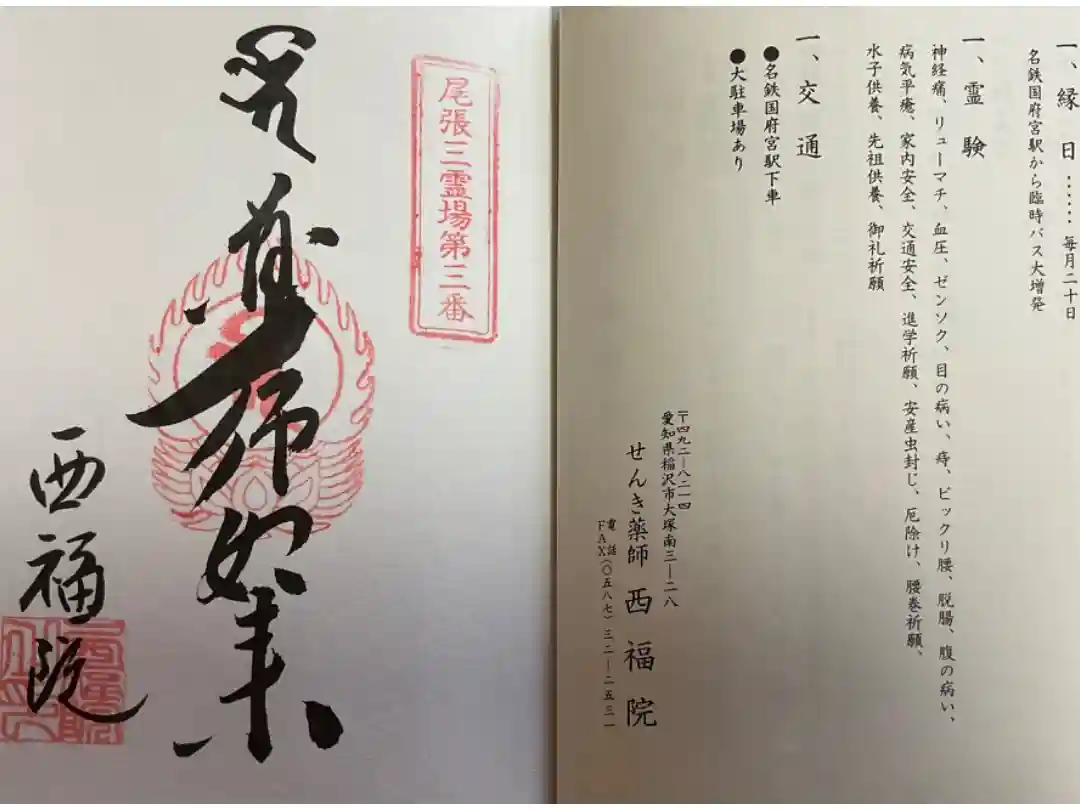 一、縁日……毎月二十日
名鉄国府宮駅から臨時バス大増発
一、霊験
神経痛、リューマチ、血圧、ゼンソク、目の病い、痔、ビックリ腰、脱腸、腹の病い、
病気平癒、家内安全、交通安全、進学祈願、安産虫封じ、厄除け、腰巻祈願、
水子供養、先祖供養、御礼祈願
一、交通
●名鉄国府宮駅下車
●大駐車場あり
〒四九二―八二一四
愛知県稲沢市大塚南三―二八
せんき薬師 西福院
電話
FAX(〇五八七)三二―二五三一
尾張三霊場第三番
薬師如来
西福院